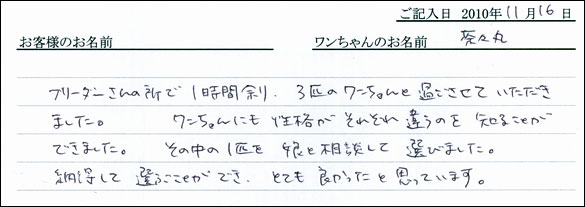 ご記入日 2010年11月16日
お客様のお名前 ワンちゃんのお名前 奈々丸
ブリーダーさんの所で1時間余り、3匹のワンちゃんと過ごさせていただき
ました。 ワンちゃんにも性格がそれぞれ違うのを知ることが
できました。 その中の1匹を娘と相談して選びました。
納得して選ぶことができ、とても良かったと思っています。